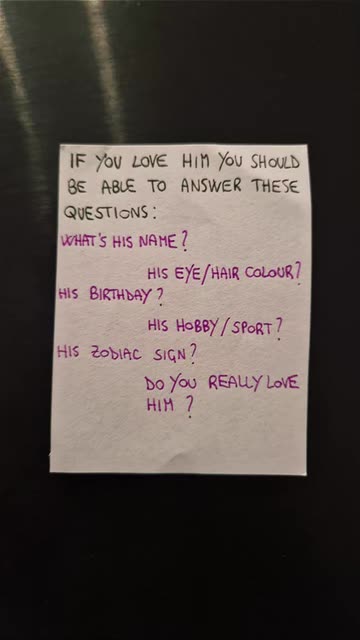 IF YOU LOVE HIM YOU SHOULD
BE ABLE TO ANSWER THESE
QUESTIONS:
WHAT'S HIS NAME?
HIS EYE/HAIR COLOUR?
HIS BIRTHDAY?
HIS HOBBY/SPORT?
HIS ZODIAC SIGN?
DO YOU REALLY LOVE
HIM?